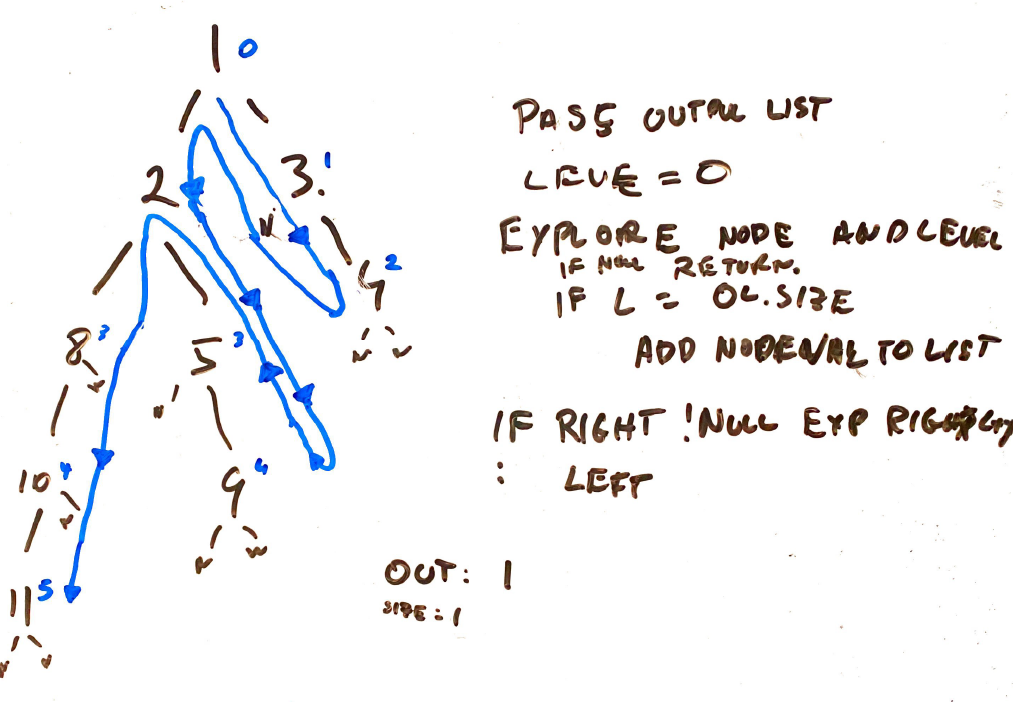 1 0
2 3. 1
N
4 2
N N
8 3 5 3
N N
10 4 9 4
N N N
11 5
N N
PASS OUTPUT LIST
LEVE = 0
EXPLORE NODE AND LEVEL
IF NULL RETURN.
IF L = OL.SIZE
ADD NODEVAL TO LIST
IF RIGHT !NULL EXP RIGHT
: LEFT
OUT: 1
SIZE: 1